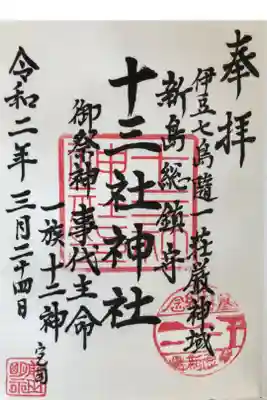 奉拝
伊豆七島隨一荘厳神域
新島総鎮守
十三社神社
御祭神 事代主命
一族 十二神
令和二年 三月二十四日